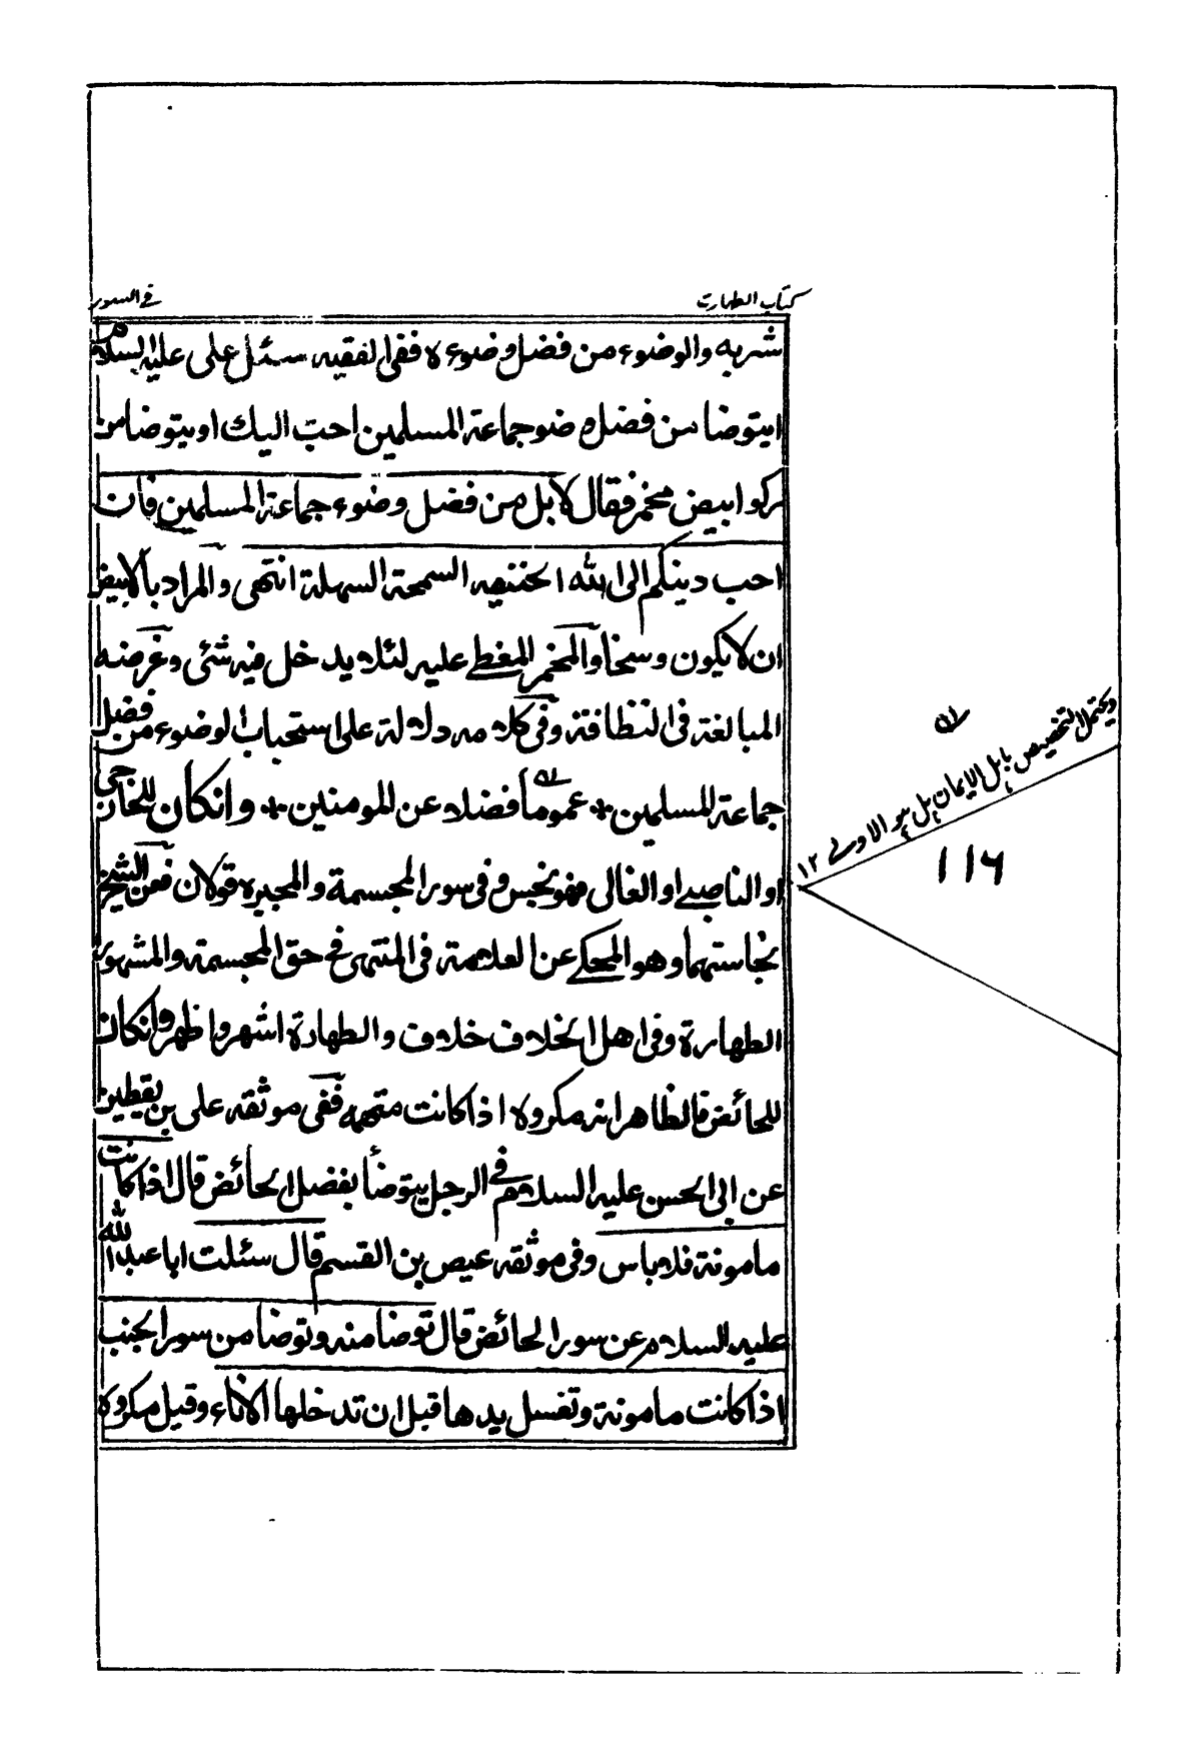 كتاب الطهارت
في السور
شربه والوضوء من فضل وضوءه ففي الفقيه سئل على عليه السلام
ايتوضا من فضل وضو جماعة المسلمين احب اليك او يتوضا من
ركو ابيض مخمر فقال لا بل من فضل وضوء جماعة المسلمين فان
احب دينكم الى الله الحنيفيه السمحة السهلة انتهى والمراد بالابيض
ان لا يكون وسخا والمخمر المغطے عليه لئلا يدخل فيه شئى وغرضه
المبالغة فى النظافة وفى كلامه دلالة على استحباب الوضوء من فضل
جماعة المسلمين * عموما فضلا عن المومنين * وانكان للخارجى
او الناصبے او الغالى فهو نجس وفى سور المجسمة والمجبره قولان فعن الشيخ
نجاستهما وهو المحكے عن العلامة فى المنتهى فى حق المجسمة والمشهور
الطهارة وفى اهل الخلاف خلاف والطهارة اشهر واظهر وانكان
للحائض فالظاهر انه مكروه اذا كانت متهمه ففى موثقه على بن يقطين
عن ابى الحسن عليه السلام فى الرجل يتوضأ بفضل الحائض قال اذا كانت
مامونة فلا باس وفى موثقه عيص بن القسم قال سئلت ابا عبد الله
عليه السلام عن سور الحائض قال توضا منه وتوضا من سور الجنب
اذا كانت مامونة وتغسل يدها قبل ان تدخلها الاناء وقيل مكروه
ويحتمل التخصيص باهل الايمان بل هو الاولے ١٢
١١٦